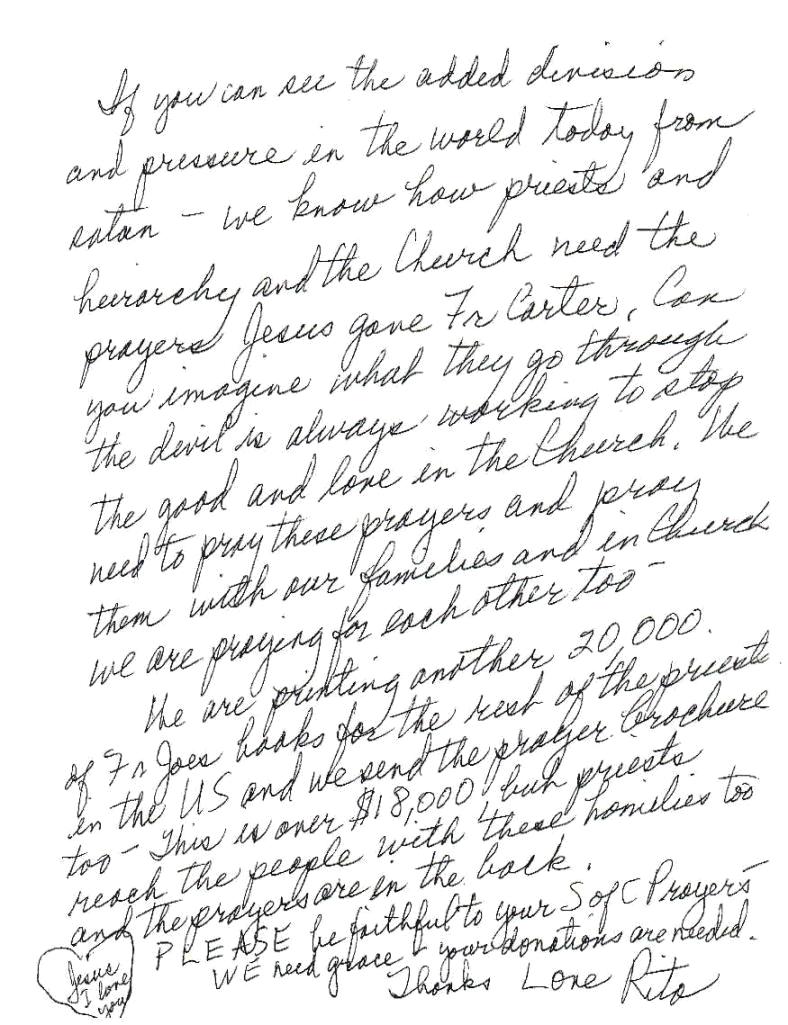 If you can see the added division
and pressure in the world today from
satan - we know how priests and
heirarchy and the Church need the
prayers Jesus gave Fr Carter. Can
you imagine what they go through
the devil is always working to stop
the good and love in the Church. We
need to pray these prayers and pray
them with our families and in Church
we are praying for each other too -
We are printing another 20,000.
of Fr Joes books for the rest of the priests
in the US and we send the prayer brochure
too - This is over $18,000, but priests
reach the people with these homilies too
and the prayers are in the back.
PLEASE be faithful to your S of C Prayers
WE need grace - your donations are needed.
Thanks Love Rita
Jesus
I love
you